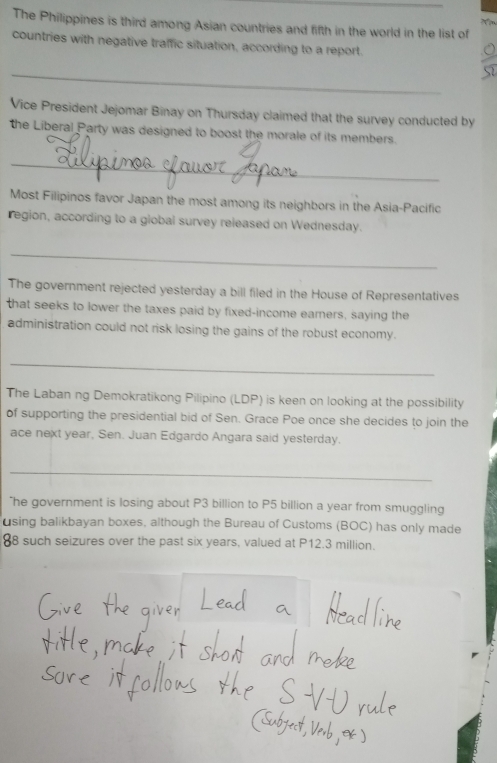 The Philippines is third among Asian countries and fifth in the world in the list of
countries with negative traffic situation, according to a report.
Vice President Jejomar Binay on Thursday claimed that the survey conducted by
the Liberal Party was designed to boost the morale of its members.
Filipinos favor Japan
Most Filipinos favor Japan the most among its neighbors in the Asia-Pacific
region, according to a global survey released on Wednesday.
The government rejected yesterday a bill filed in the House of Representatives
that seeks to lower the taxes paid by fixed-income earners, saying the
administration could not risk losing the gains of the robust economy.
The Laban ng Demokratikong Pilipino (LDP) is keen on looking at the possibility
of supporting the presidential bid of Sen. Grace Poe once she decides to join the
ace next year, Sen. Juan Edgardo Angara said yesterday.
he government is losing about P3 billion to P5 billion a year from smuggling
using balikbayan boxes, although the Bureau of Customs (BOC) has only made
88 such seizures over the past six years, valued at P12.3 million.
Give the given Lead a Headline
title, make it short and make
sure it follows the S-V-O rule
(Subject, Verb, etc)